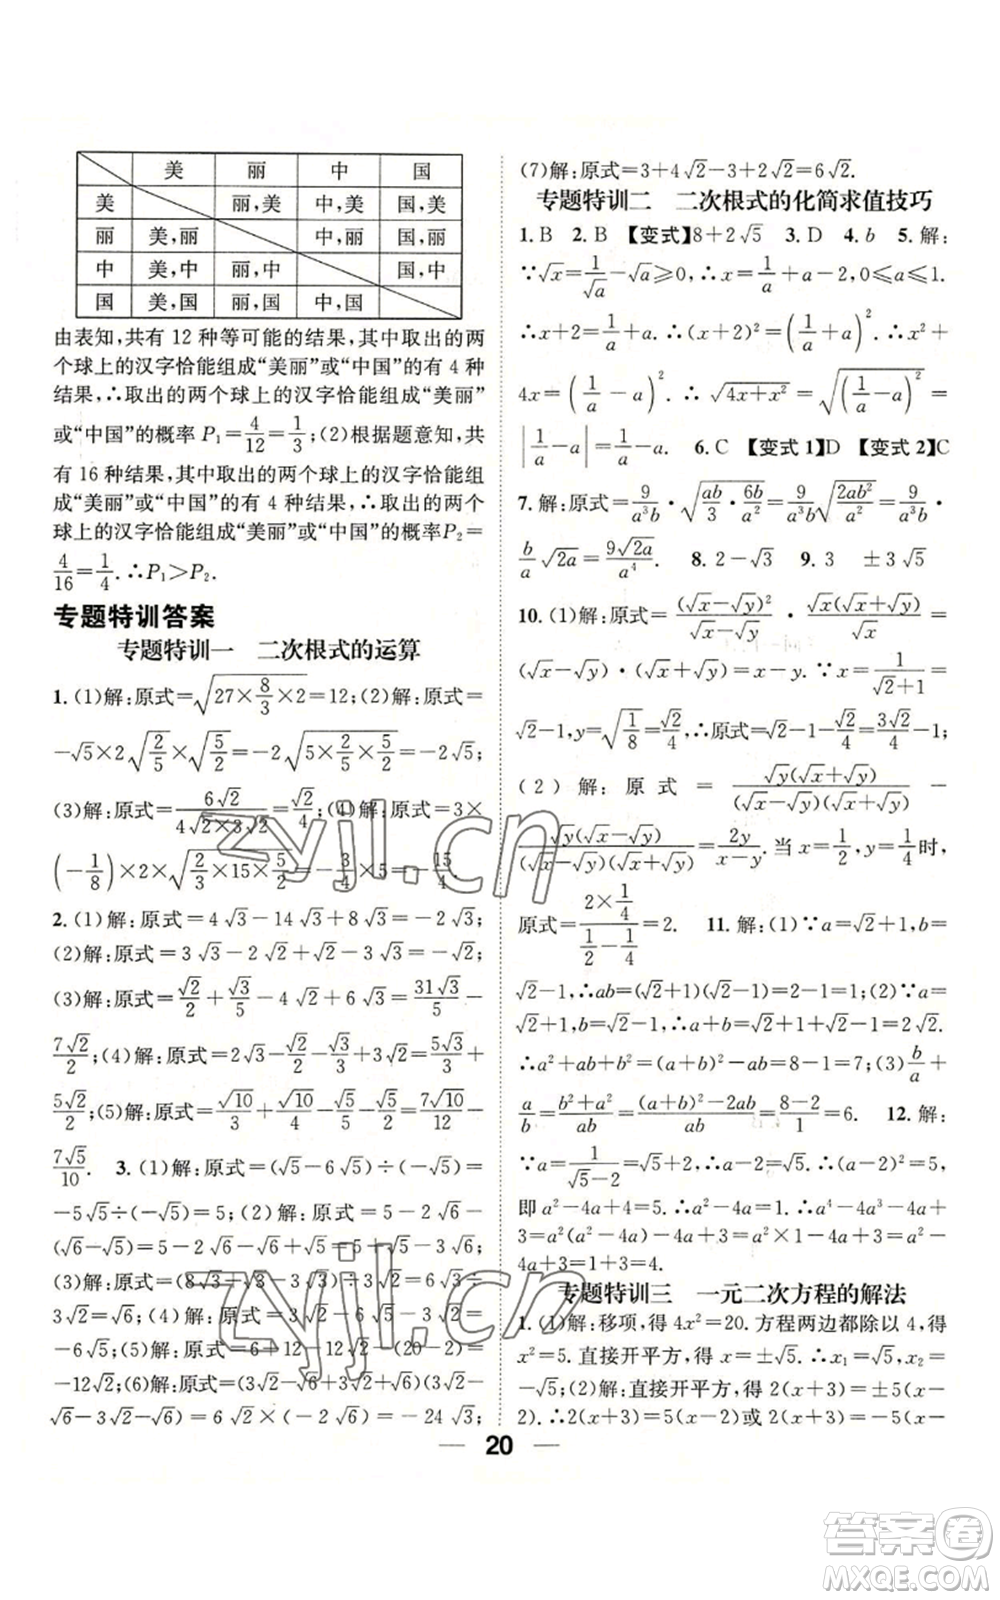 美 丽 中 国
美 丽,美 中,美 国,美
丽 美,丽 中,丽 国,丽
中 美,中 丽,中 国,中
国 美,国 丽,国 中,国
由表知,共有 12 种等可能的结果,其中取出的两
个球上的汉字恰能组成“美丽”或“中国”的有 4 种
结果,∴取出的两个球上的汉字恰能组成“美丽”
或“中国”的概率 P₁=4/12=1/3;(2)根据题意知,共
有 16 种结果,其中取出的两个球上的汉字恰能组
成“美丽”或“中国”的有 4 种结果,∴取出的两个
球上的汉字恰能组成“美丽”或“中国”的概率P₂=
4/16=1/4.∴P₁>P₂.
专题特训答案
专题特训一 二次根式的运算
1.(1)解:原式=√(27×8/3×2)=12;(2)解:原式=
-√5×2√(2/5)×√(5/2)=-2√(5×2/5×5/2)=-2√5;
(3)解:原式=6√2/(4√2×3√2)=√2/4;(4)解:原式=3×
(-1/8)×2×√(2/3×15×5/2)=-3/4×5=-15/4.
2.(1)解:原式=4√3-14√3+8√3=-2√3;
(2)解:原式=3√3-2√2+√2-3√3=-√2;
(3)解:原式=√2/2+√3/6-4√2+6√3=31√3/6-
7√2/2;(4)解:原式=2√3-√2/2-√3/3+3√2=5√3/3+
5√2/2;(5)解:原式=√10/5+√10/2-√5/2-√5/5=7√10/10-
7√5/10. 3.(1)解:原式=(√5-6√5)÷(-√5)=
-5√5÷(-√5)=5;(2)解:原式=5-2√6-
(√6-√5)=5-2√6-√6+√5=5-3√6+√5;
(3)解:原式=(8√3+√3-3√3)÷3√2=6√3÷
3√2=√6;(4)解:原式=3√3-6√2+6√2-4√3
=-√3;(5)解:原式=6+12-12√2-(20-2)=
-12√2;(6)解:原式=(√3+3√2-√6)(√3-
√6-3√2)=6√2×(-2√6)=-24√3;
(7)解:原式=3+4√2-3+2√2=6√2.
专题特训二 二次根式的化简求值技巧
1.B 2.B 【变式】8+2√5 3.D 4.b 5.解:
∵√x=1/√a-√a≥0,∴x=1/a+a-2,0≤a≤1.
∴x+2=1/a+a.∴(x+2)²=(1/a+a)².∴x²+
4x=(1/a-a)².∴√(4x+x²)=√((1/a-a)²)=
|1/a-a|=1/a-a. 6.C 【变式1】D 【变式2】C
7.解:原式=9/(a³b)·√(ab/3·6b/a²)=9/(a³b)√(2ab²/a²)=9/(a³b)·
b/a√2a=9√2a/a⁴. 8.2-√3 9.3 ±3√5
10.(1)解:原式=(√x-√y)²/(√x-√y)·√x(√x+√y)/√x=
(√x-√y)·(√x+√y)=x-y.∵x=1/(√2+1)=
√2-1,y=√(1/8)=√2/4,∴原式=√2-1-√2/4=3√2/4-1;
(2)解:原式=√y(√x+√y)/((√x-√y)(√x+√y))-
√y(√x-√y)/((√x-√y)(√x+√y))=2y/(x-y).当x=1/2,y=1/4时,
原式=(2×1/4)/(1/2-1/4)=2. 11.解:(1)∵a=√2+1,b=
√2-1,∴ab=(√2+1)(√2-1)=2-1=1;(2)∵a=
√2+1,b=√2-1,∴a+b=√2+1+√2-1=2√2.
∴a²+ab+b²=(a+b)²-ab=8-1=7;(3)b/a+
a/b=(b²+a²)/ab=((a+b)²-2ab)/ab=(8-2)/1=6. 12.解:
∵a=1/(√5-2)=√5+2,∴a-2=√5.∴(a-2)²=5,
即a²-4a+4=5.∴a²-4a=1.∴a⁴-4a³-4a+
3=a²(a²-4a)-4a+3=a²×1-4a+3=a²-
4a+3=1+3=4.
专题特训三 一元二次方程的解法
1.(1)解:移项,得4x²=20.方程两边都除以4,得
x²=5.直接开平方,得x=±√5.∴x₁=√5,x₂=
-√5;(2)解:直接开平方,得2(x+3)=±5(x-
2).∴2(x+3)=5(x-2)或2(x+3)=-5(x-
20
zyjl.cn
zyjl.cn
答案圈
MXQE.COM